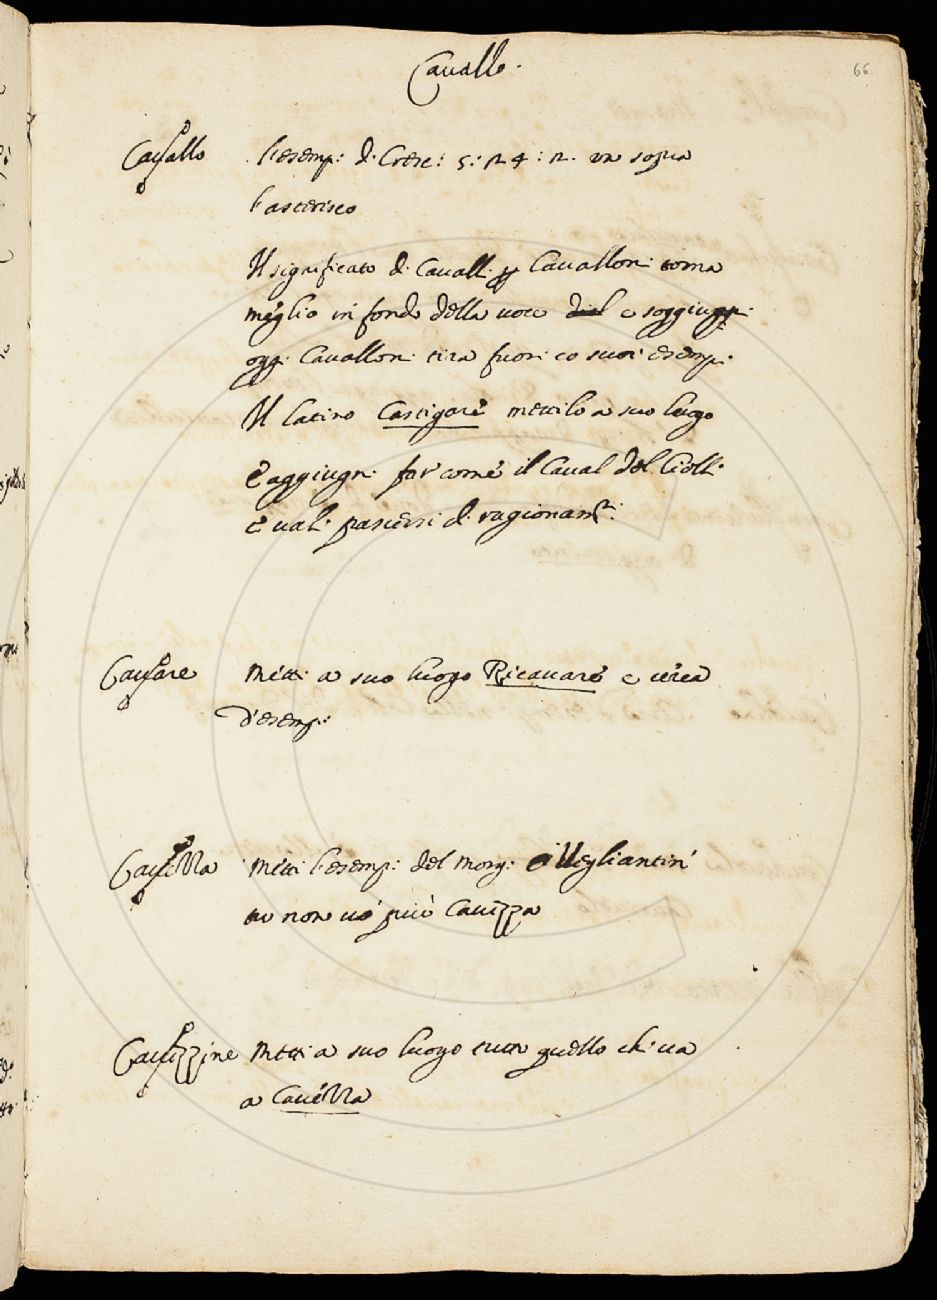 Cavallo.
66
Cavallo l'esemp: d. Cresc: 5: n. va sopra
l'asterisco
Il significato d. Cavall. Cavallon: torna
meglio in fondo della voce e soggiugn:
ogg. Cavallon: tira fuori co suoi esemp.
Il latino Castigare mettilo a suo luogo
E aggiugn: far come il Caval del Ciolle
e val. pascersi d. ragionam.ti
Cavare Metti a suo luogo Ricavare e cerca
d'esemp:
Metti l'esemp: del Morg: Vegliantin
tu non vo' più Cavezza
Cavezzine Metti a suo luogo tutto quello che va
a